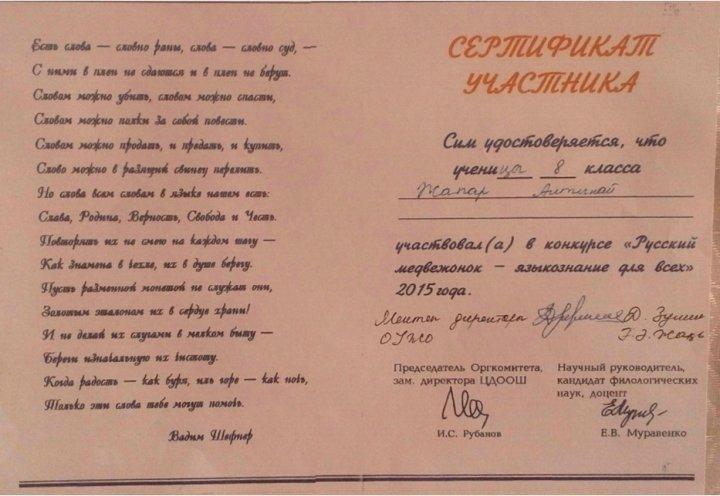 Есть слова — словно раны, слова — словно суд, —
С ними в плен не сдаются и в плен не берут.
Словом можно убить, словом можно спасти,
Словом можно полки за собой повести.
Словом можно продать, и предать, и купить,
Слово можно в разящий свинец перелить.
Но слова всем словам в языке нашем есть:
Слава, Родина, Верность, Свобода и Честь.
Повторять их не смею на каждом шагу —
Как знамена в чехле, их в душе берегу.
Пусть разменной монетой не служат они,
Золотым эталоном их в сердце храни!
И не делай их слугами в мелком быту —
Береги изначальную их чистоту.
Когда радость — как буря, иль горе — как ночь,
Только эти слова тебе могут помочь.
Вадим Шефнер
СЕРТИФИКАТ
УЧАСТНИКА
Сим удостоверяется, что
ученицы 8 класса
Жапар
участвовал(а) в конкурсе «Русский
медвежонок – языкознание для всех»
2015 года.
Мектеп директоры
Председатель Оргкомитета,
зам. директора ЦДООШ
И.С. Рубанов
Научный руководитель,
кандидат филологических
наук, доцент
Е.В. Муравенко